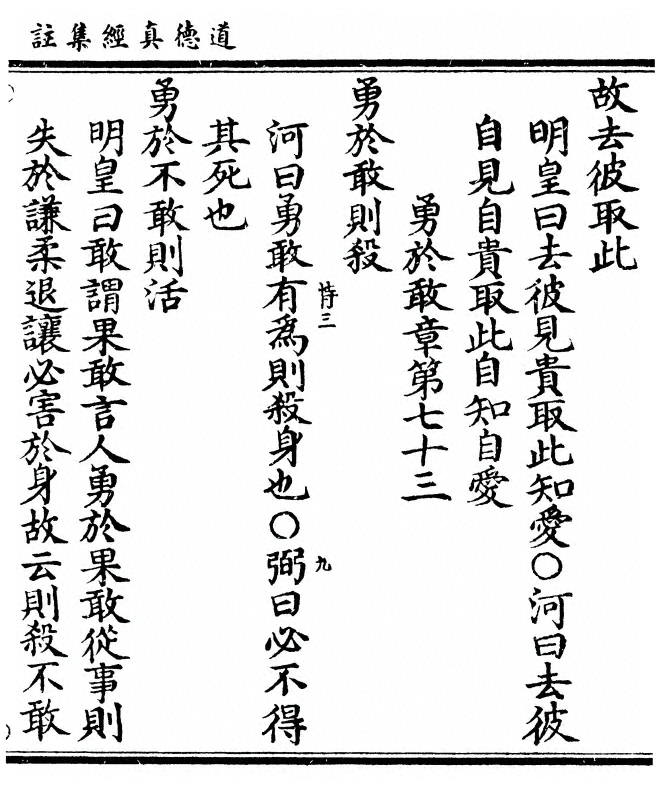 道德真經集註
故去彼取此
明皇曰去彼見貴取此知愛〇河曰去彼
自見自貴取此自知自愛
勇於敢章第七十三
勇於敢則殺
恃三
九
河曰勇敢有爲則殺身也〇弼曰必不得
其死也
勇於不敢則活
明皇曰敢謂果敢言人勇於果敢從事則
失於謙柔退讓必害於身故云則殺不敢